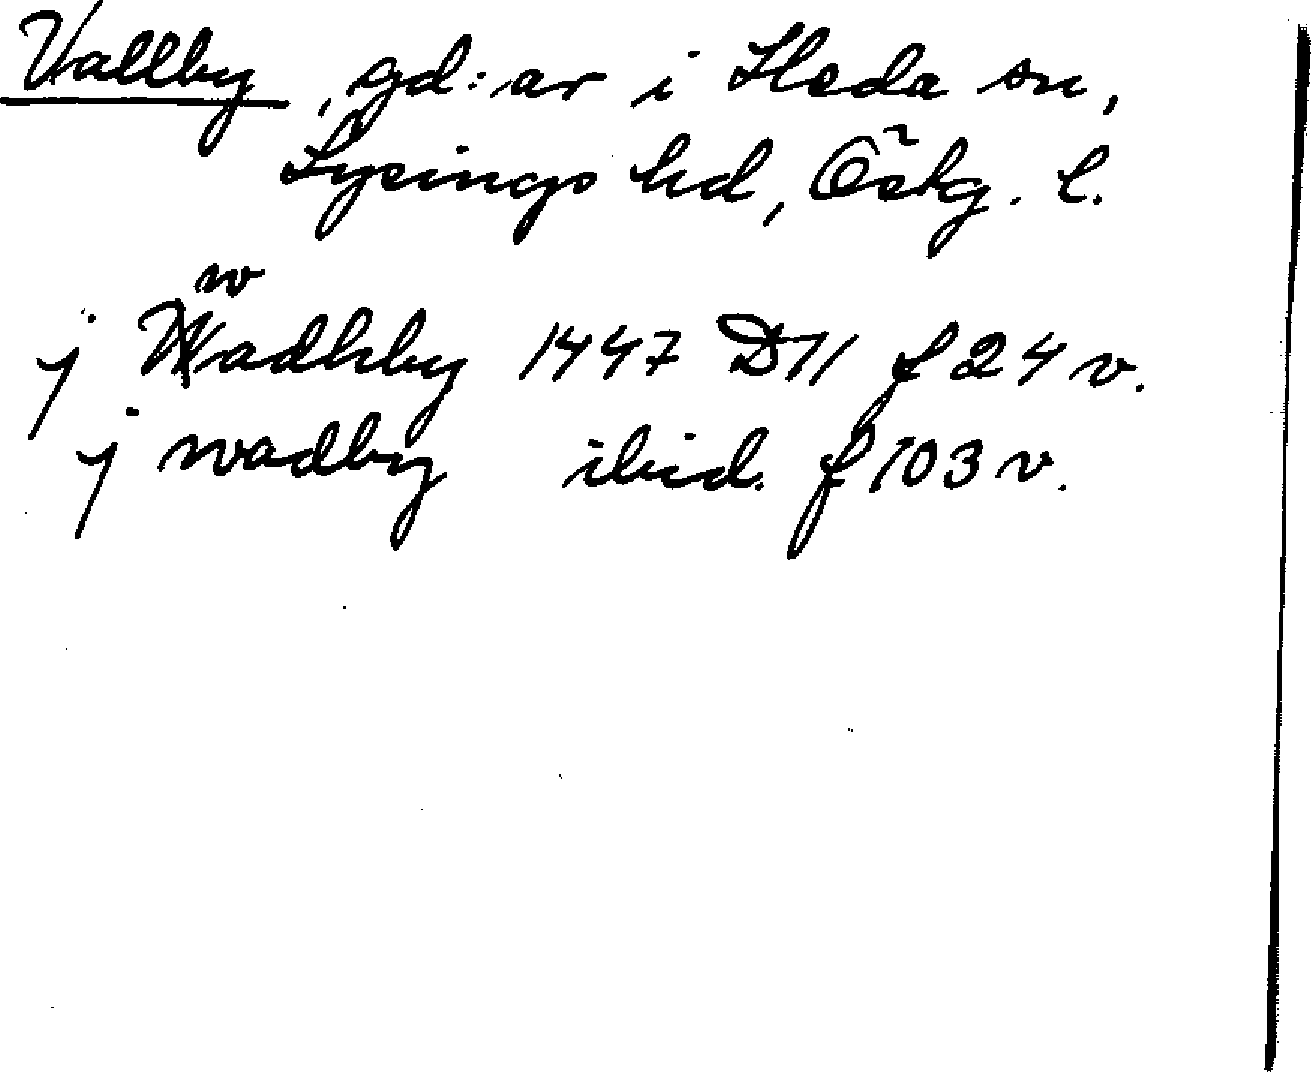 Vallby, gd:ar i Heda sn,
Lysings hd, Östg. l.
j wadhby 1447 D11 f 24 v.
j wadby ibid. f 103 v.